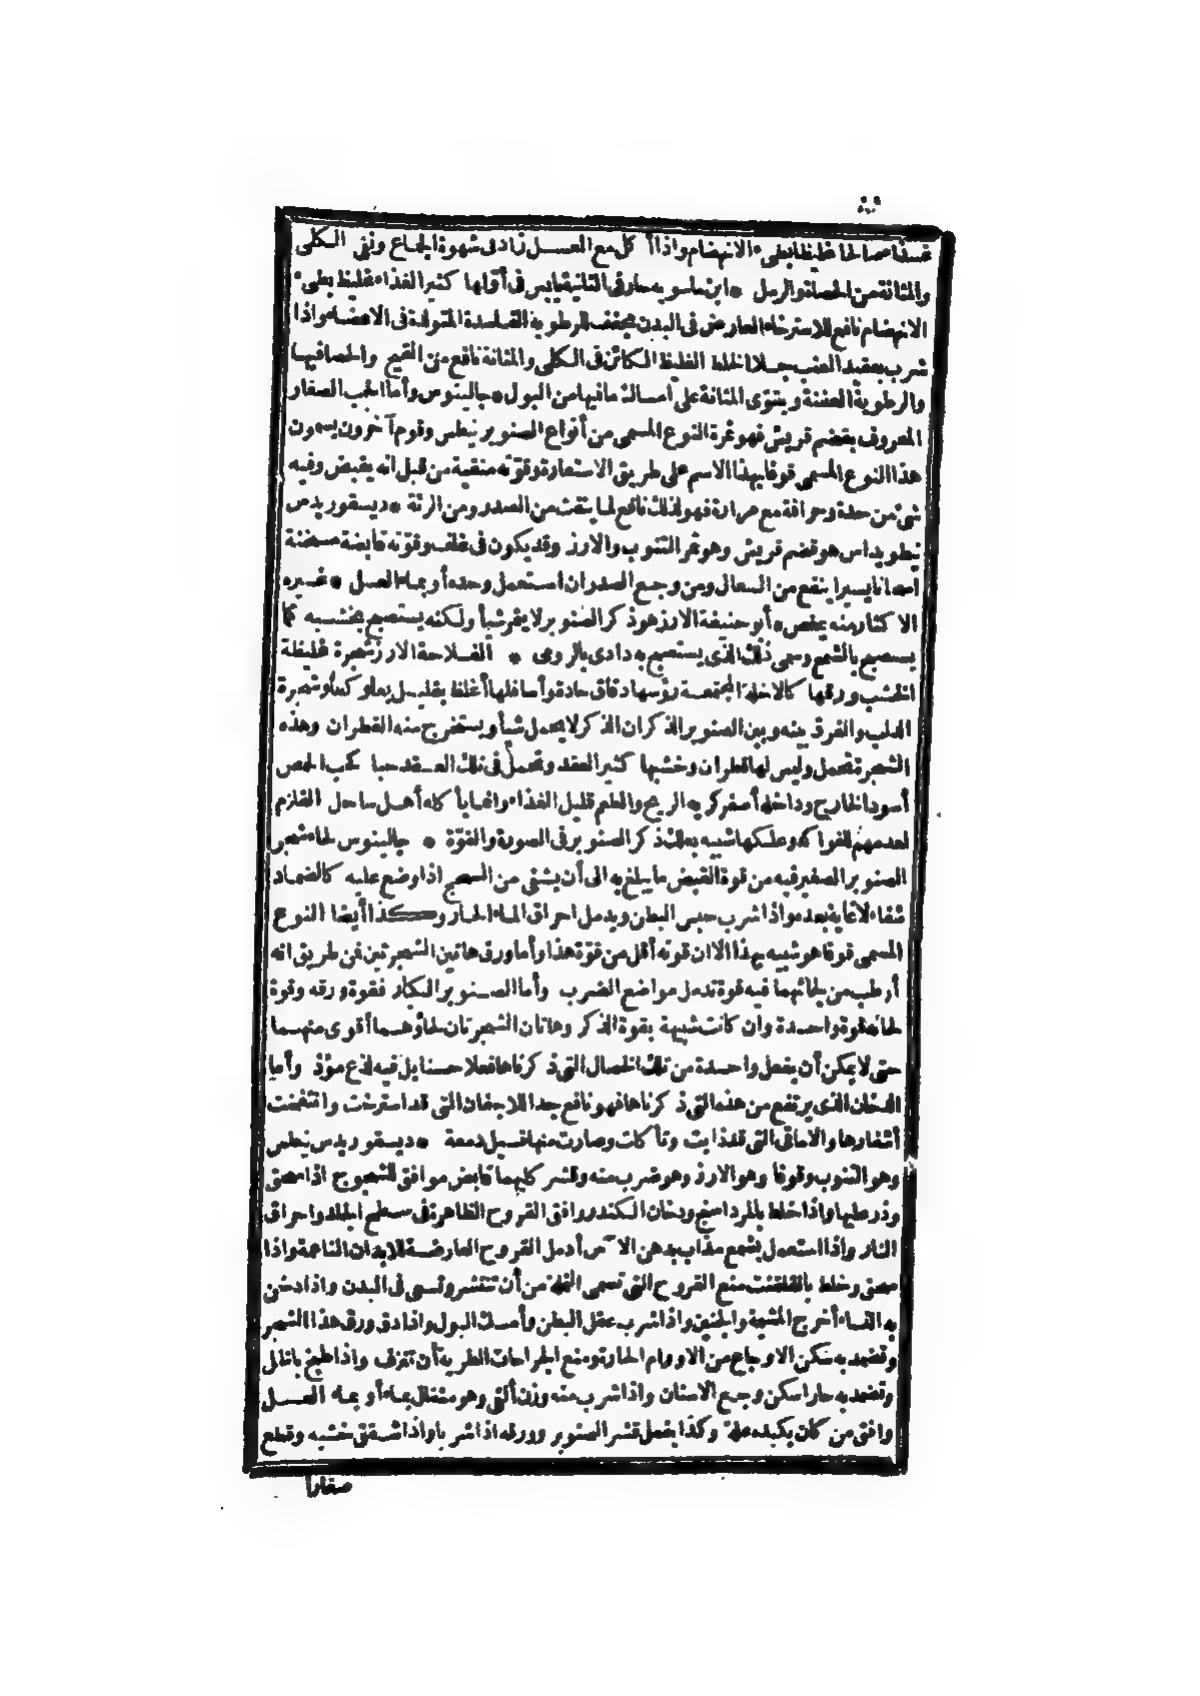 غذاء صالحا غليظا بطىء الانهضام واذا أكل مع العسل زاد فى شهوة الجماع ونقى الكلى
والمثانة من الحصاة والرمل * ابن ماسويه حار فى الثانية يابس فى أولها كثير الغذاء غليظ بطىء
الانهضام نافع للاسترخاء العارض فى البدن مجفف للرطوبة الفاسدة المتولدة فى الاعضاء واذا
شرب بعقيد العنب جلا الخلط الغليظ الكائن فى الكلى والمثانة نافع من القيح والحصا فيها
والرطوبة العفنة ويقوى المثانة على امساك ما فيها من البول * جالينوس وأما الحب الصغار
المعروف بقضم قريش فهو ثمرة النوع المسمى من أنواع الصنوبر نيطس وقوم آخرون يسمون
هذا النوع المسمى قوفا بهذا الاسم على طريق الاستعارة وقوته منقية من قبل انه يقبض وفيه
شئ من حدة وحرافة مع مرارة فهو لذلك نافع لما ينفث من الصدر ومن الرئة * ديسقوريدس
نيطويداس هو قضم قريش وهو ثمر التنوب والارز وقد يكون فى غلف وقوته قابضة مسخنة
اسخانا يسيرا ينفع من السعال ومن وجع الصدر ان استعمل وحده أو بماء العسل * غيره
الاكثار منه يمغص * أبو حنيفة الارز هو ذكر الصنوبر لا يثمر شيأ ولكنه يستصبح بخشبه كما
يستصبح بالشمع وسمى ذلك الذى يستصبح به دادى بالرومى * الفلاحة الارز شجرة غليظة
الخشب ورقها كالاخلة المجتمعة رؤسها دقاق حادة وأسافلها أغلظ بقليل يعلو كعلو شجرة
الدلب والفرق بينه وبين الصنوبر الذكر ان الذكر لا يحمل شيأ ويستخرج منه القطران وهذه
الشجرة تحمل وليس لها قطران وخشبها كثير العقد وتحمل فى تلك العقد حبا كحب الحمص
أسود الخارج وداخله أصفر كريه الريح والطعم قليل الغذاء وانما يأكله أهل ساحل القلزم
لعدمهم الفواكه وعلكها شبيه بعلك ذكر الصنوبر فى الصورة والقوة * جالينوس لحاء شجر
الصنوبر الصغير فيه من قوة القبض ما يبلغ به الى أن يشفى من السحج اذا وضع عليه كالضماد
شفاء لا غاية بعده واذا شرب حبس البطن ويدمل احراق الماء الحار وكذا أيضا النوع
المسمى قوفا هو شبيه بهذا الا ان قوته أقل من قوة هذا وأما ورق هاتين الشجرتين فمن طريق انه
أرطب من لحائهما فيه قوة تدمل مواضع الضرب وأما الصنوبر الكبار فقوة ورقه وقوة
لحائه قوة واحدة وان كانت شبيهة بقوة الذكر وهاتان الشجرتان لحاؤهما أقوى منهما
حتى لا يمكن أن يفعل واحدة من تلك الخصال التى ذكرناها فعلا حسنا بل فيه لذع مؤذ وأما
الدخان الذى يرتفع من هذه التى ذكرناها فهو نافع جدا للاجفان التى قد استرخت وانتفخت
أشفارها والاماقى التى قد ذابت وتأكلت وصارت منها تسيل دمعة * ديسقوريدس نيطس
وهو التنوب وقوفا وهو الارز وهو ضرب منه وقشر كليهما قابض موافق للسحوج اذا سحق
وذر عليها واذا خلط بالمرداسنج ودخان الكندر وافق القروح الظاهرة فى سطح الجلد واحراق
النار واذا استعمل بشمع مذاب بدهن الآس أدمل القروح العارضة للابدان الناعمة واذا
سحق وخلط بالقلقنت منع القروح التى تسمى النملة من أن تنتشر وتسعى فى البدن واذا دخن
به النساء أخرج المشيمة والجنين واذا شرب عقل البطن وأمسك البول واذا دق ورق هذا الشجر
وتضمد به سكن الاوجاع من الاورام الحارة ومنع الجراحات الطرية أن تنزف واذا طبخ بالخل
وتضمد به حارا سكن وجع الاسنان واذا شرب منه وزن ألقى وهو مثقال بماء أو بماء العسل
وافق من كان بكبده علة وكذا يفعل قشر الصنوبر وورقه اذا شربا واذا شقق خشبه وقطع
صغارا